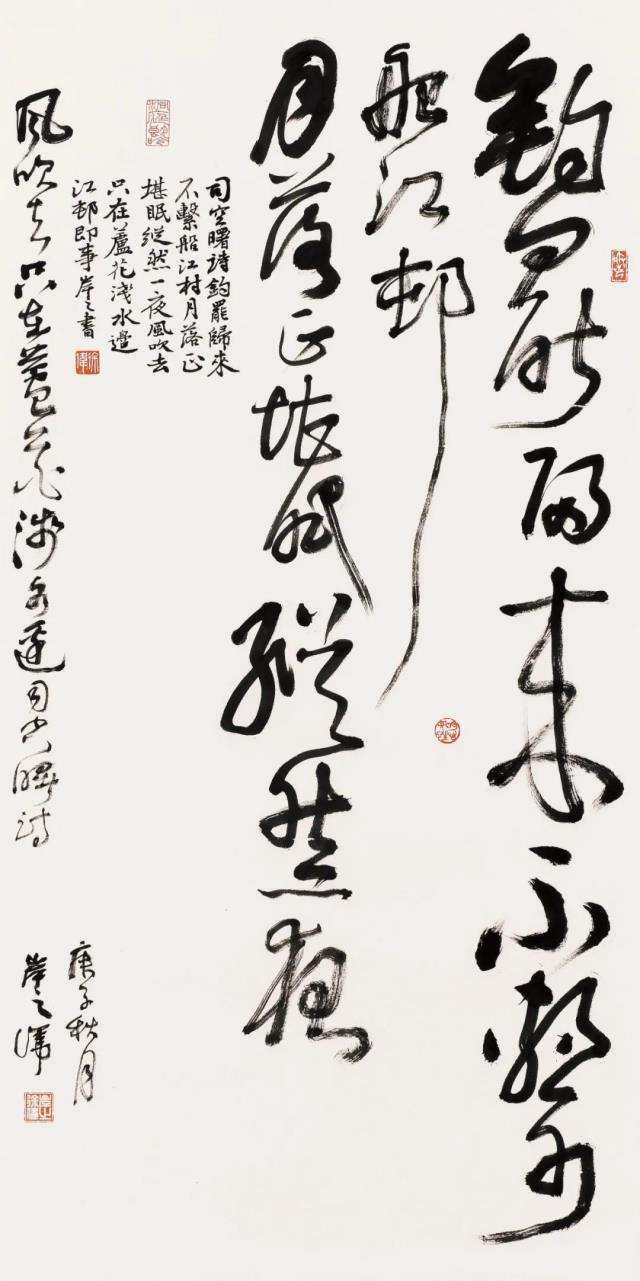 釣罷歸來不繫
船江邨
月落正堪眠縱然一夜
風吹去只在蘆花淺水邊司空曙詩
庚子秋月
司空曙詩釣罷歸來
不繫船江村月落正
堪眠縱然一夜風吹去
只在蘆花淺水邊
江邨即事 書